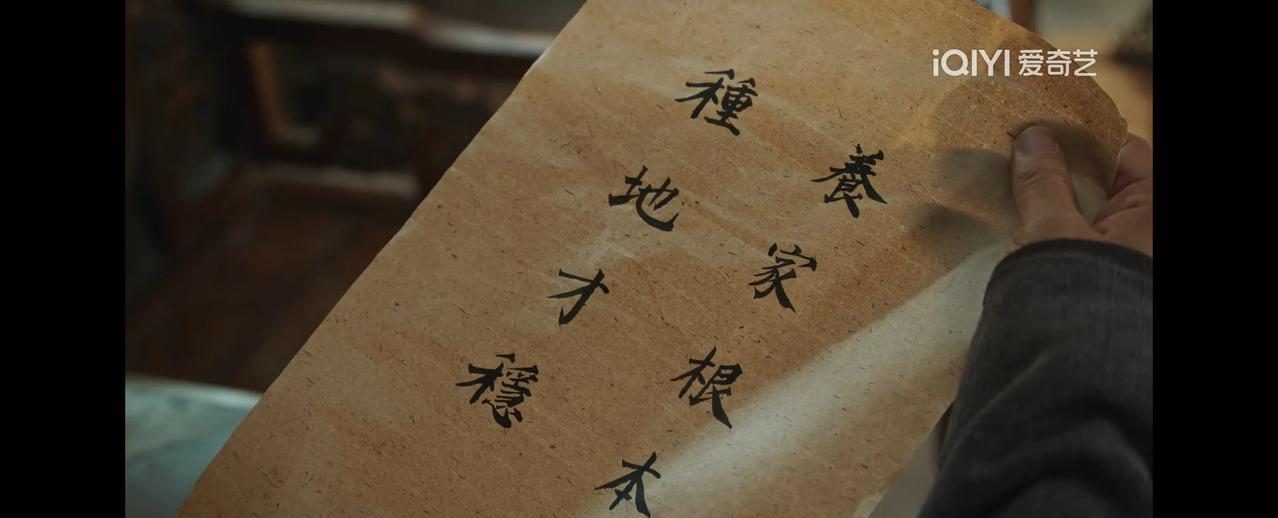 iQIYI 爱奇艺
養家根本
種地才穩